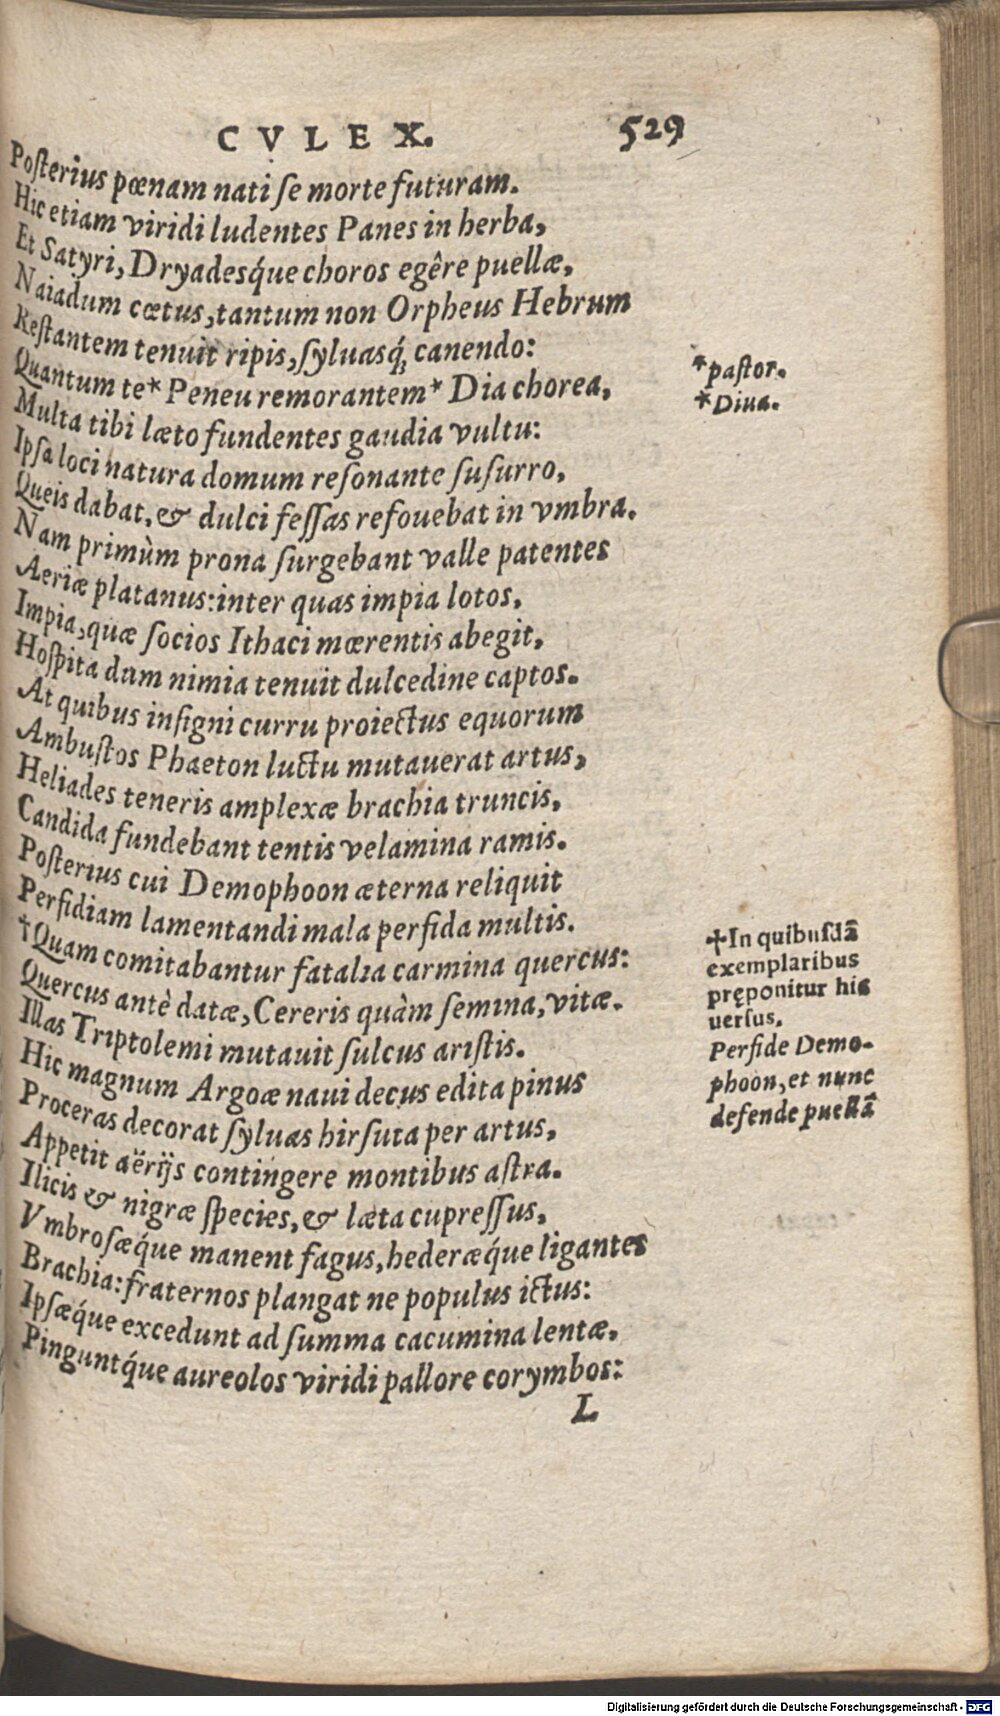 CVLEX. 529
Posterius pœnam nati se morte futuram.
Hic etiam viridi ludentes Panes in herba,
Et Satyri, Dryadesq́ue choros egêre puellæ,
Naiadum cœtus, tantum non Orpheus Hebrum
Restantem tenuit ripis, syluasq́; canendo:
Quantum te* Peneu remorantem* Dia chorea,
*pastor.
*Diua.
Multa tibi læto fundentes gaudia vultu:
Ipsa loci natura domum resonante susurro,
Queis dabat, & dulci fessas refouebat in vmbra.
Nam primùm prona surgebant valle patentes
Aeriæ platanus: inter quas impia lotos,
Impia, quæ socios Ithaci mœrentis abegit,
Hospita dum nimia tenuit dulcedine captos.
At quibus insigni curru proiectus equorum
Ambustos Phaeton luctu mutauerat artus,
Heliades teneris amplexæ brachia truncis,
Candida fundebant tentis velamina ramis.
Posterius cui Demophoon æterna reliquit
Perfidiam lamentandi mala perfida multis.
†Quam comitabantur fatalia carmina quercus:
Quercus antè datæ, Cereris quàm semina, vitæ.
Illas Triptolemi mutauit sulcus aristis.
Hic magnum Argoæ naui decus edita pinus
Proceras decorat syluas hirsuta per artus,
Appetit aërijs contingere montibus astra.
Ilicis & nigræ species, & læta cupressus,
Vmbrosæq́ue manent fagus, hederæq́ue ligantes
Brachia: fraternos plangat ne populus ictus:
Ipsæq́ue excedunt ad summa cacumina lentæ,
Pinguntq́ue aureolos viridi pallore corymbos:
†In quibusdā
exemplaribus
pręponitur hic
uersus.
Perfide Demo-
phoon, et nunc
defende puellā
L
Digitalisierung gefördert durch die Deutsche Forschungsgemeinschaft - DFG